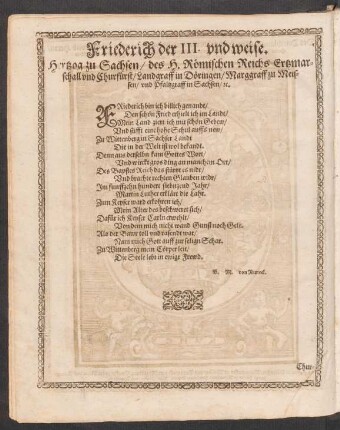 Friederich der III. vnd weise.
Hertzog zu Sachsen/ des H. Römischen Reichs Ertzmar-
schall vnd Churfürst/ Landgraff in Döringen/ Marggraff zu Meis-
sen/ vnd Pfaltzgraff in Sachsen/ ꝛc.
FRiederich bin ich billich genandt/
Den schön Fried erhielt ich im Landt/
Mein Land ziert ich mit schön Gebew/
Vnd stifft eine hohe Schul auffs new/
Zu Wittenberg in Sachser Landt
Die in der Welt ist wol bekandt.
Denn aus derselben kam Gottes Wort/
Vnd wirckt gros ding an manchem Ort/
Des Bapstes Reich das stürtzt es nider/
Vnd bracht rechten Glauben wider/
Im funfftzehn hundert siebtzend Jahr/
Martin Luther erklärt die Lahr.
Zum Keyser ward erkohren ich/
Mein Alter des beschweret sich/
Dafür ich Keyser Carln erwehlt/
Von dem mich nicht wand Gunst noch Gelt.
Als der Bawr toll vnd rasendt war/
Nam mich Gott auff zur selign Schar.
Zu Wittenberg mein Cörper leit/
Die Seele lebt in ewiger Frewd.
B. M. von
Chur-